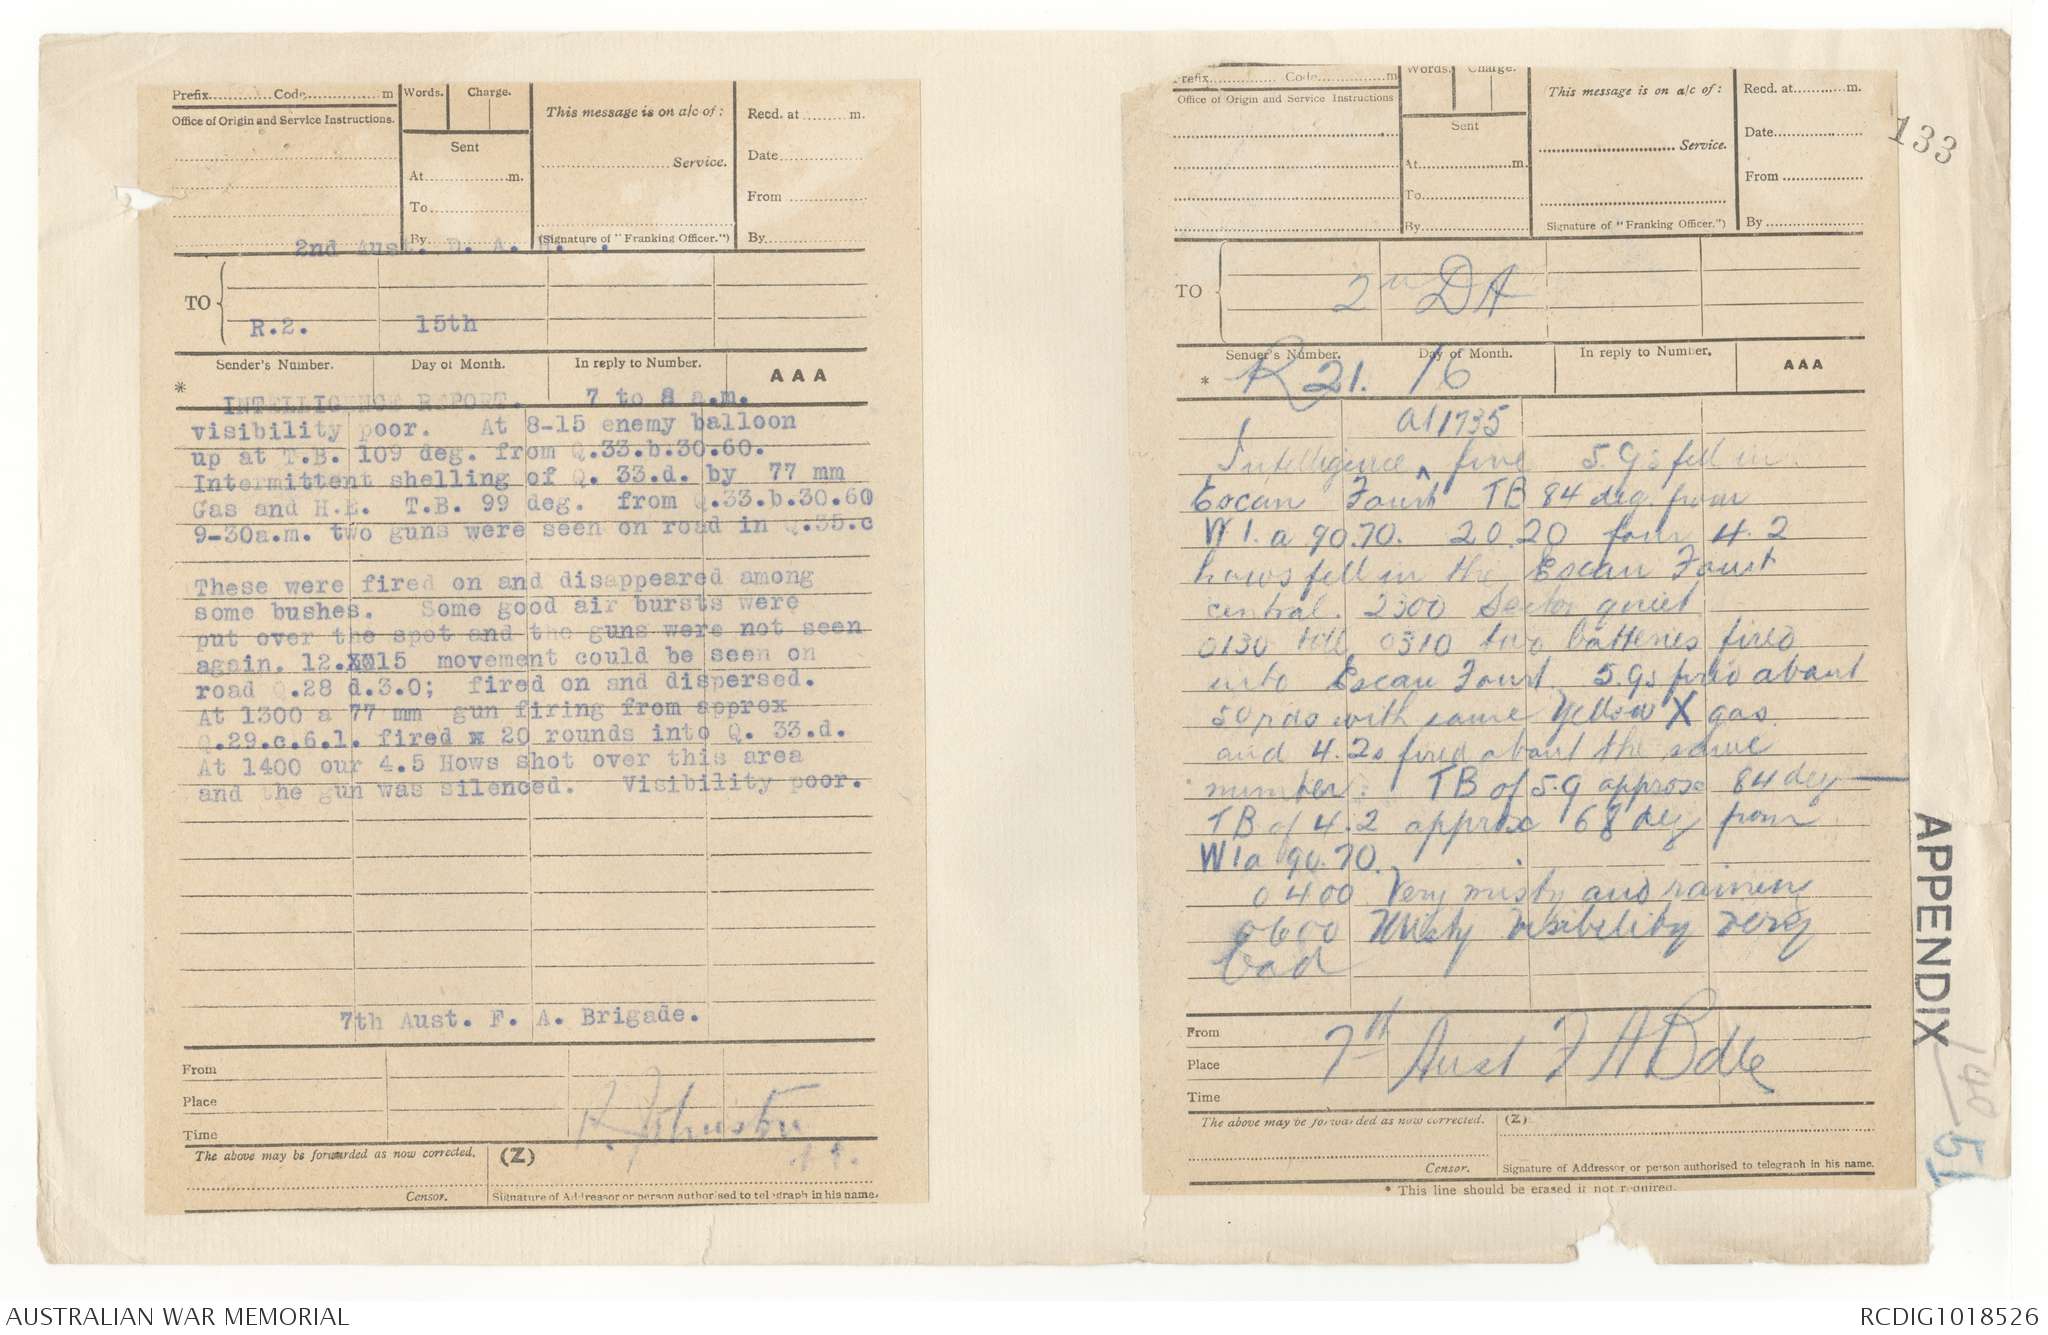 Prefix............Code..................m
Words.
Charge.
This message is on a/c of:
Recd. at .........m.
Office of Origin and Service Instructions.
Sent
Service.
Date
At..................m.
From
To
By
(Signature of "Franking Officer.")
By
2nd Aust. D. A. H. Q.
TO
R.2. 15th
Sender's Number.
Day of Month.
In reply to Number.
AAA
*
INTELLIGENCE REPORT. 7 to 8 a.m.
visibility poor. At 8-15 enemy balloon
up at T.B. 109 deg. from Q.33.b.30.60.
Intermittent shelling of Q. 33.d. by 77 mm
Gas and H.E. T.B. 99 deg. from Q.33.b.30.60
9-30a.m. two guns were seen on road in Q.35.c
These were fired on and disappeared among
some bushes. Some good air bursts were
put over the spot and the guns were not seen
again. 12.15 movement could be seen on
road Q.28 d.3.0; fired on and dispersed.
At 1300 a 77 mm gun firing from approx
Q.29.c.6.1. fired x 20 rounds into Q. 33.d.
At 1400 our 4.5 Hows shot over this area
and the gun was silenced. Visibility poor.
7th Aust. F. A. Brigade.
From
Place
Time
R. Johnston
The above may be forwarded as now corrected.
(Z)
Censor.
Signature of Addressor or person authorised to telegraph in his name.
Prefix............Code..................m
Words.
Charge.
This message is on a/c of:
Recd. at............m.
Office of Origin and Service Instructions
Sent
Service.
Date
At..................m.
From
To
By
Signature of "Franking Officer.")
By
133
TO
2nd DA
Sender's Number.
Day of Month.
In reply to Number.
AAA
*
R21. 16
at 1735
Intelligence ^ five 5.9s fell in
Escan Faust TB 84 deg. from
W1.a 90.70. 20.20 four 4.2
hows fell in the Escan Faust
central. 2300 Sector quiet
0130 till 0310 two batteries fired
into Escan Faust. 5.9s fired about
50 rds with some Yellow X gas
and 4.2s fired about the same
number. TB of 5.9 approx 84 deg
TB of 4.2 approx 68 deg from
W1a 90.70.
0400 Very misty and raining
0600 Misty visibility very
bad
From
Place
Time
7th Aust F A Bde
The above may be forwarded as now corrected.
(Z)
Censor.
Signature of Addressor or person authorised to telegraph in his name.
* This line should be erased if not required.
APPENDIX
140
51
AUSTRALIAN WAR MEMORIAL
RCDIG1018526